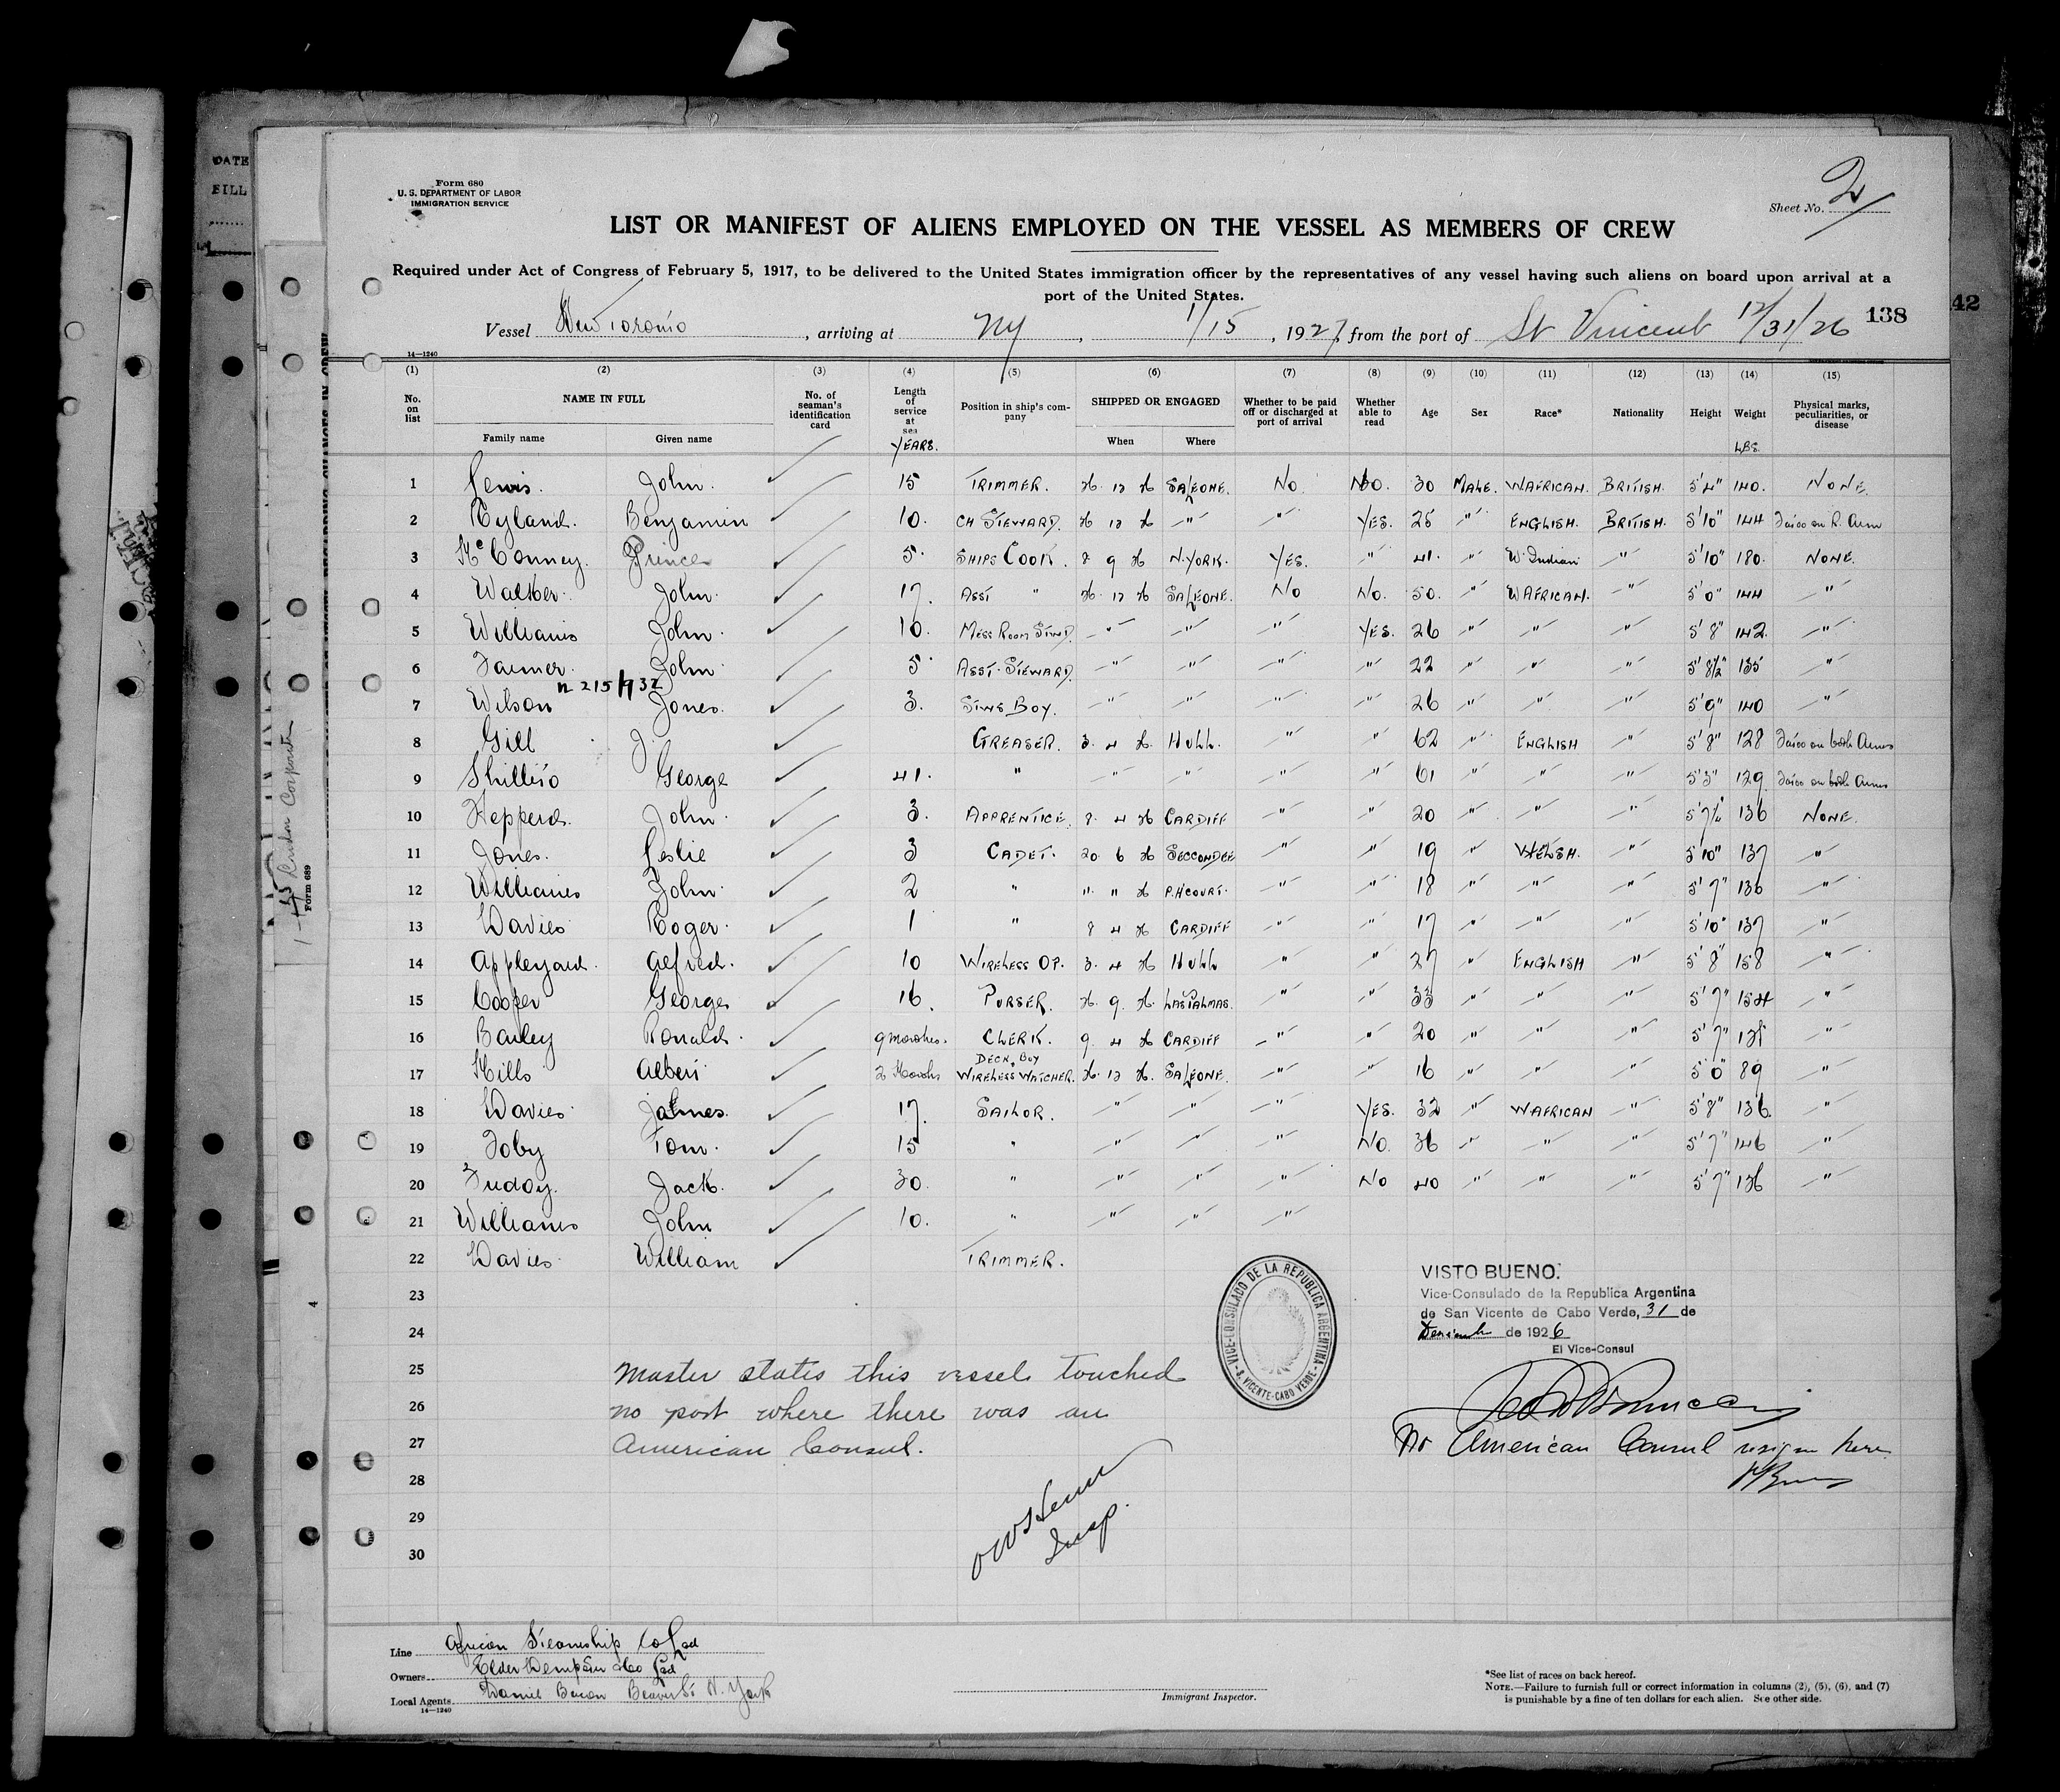 DATE
FILL
Form 680
U. S. DEPARTMENT OF LABOR
IMMIGRATION SERVICE
Sheet No. 2
LIST OR MANIFEST OF ALIENS EMPLOYED ON THE VESSEL AS MEMBERS OF CREW
Required under Act of Congress of February 5, 1917, to be delivered to the United States immigration officer by the representatives of any vessel having such aliens on board upon arrival at a
port of the United States.
Vessel New Toronto, arriving at NY, 1/15, 1927, from the port of St Vincent 12/31/26 138
42
14—1240
(1) (2) (3) (4) (5) (6) (7) (8) (9) (10) (11) (12) (13) (14) (15)
No. on list NAME IN FULL Family name Given name No. of seaman's identification card Length of service at sea YEARS. Position in ship's company SHIPPED OR ENGAGED When Where Whether to be paid off or discharged at port of arrival Whether able to read Age Sex Race* Nationality Height Weight LBS. Physical marks, peculiarities, or disease
1 Lewis. John. 15 TRIMMER. 26 12 26 SALEONE. No. No. 30 MALE. WAFRICAN. BRITISH. 5'4" 140. NONE.
2 Ryland. Benjamin 10. CH STEWARD. 26 12 26 " " YES. 25 " ENGLISH. BRITISH. 5'10" 144 Tatoo on R. Arm
3 McConney. Prince 5. SHIPS COOK. 8 9 26 N.YORK. YES. " 41. " W. Indian " 5'10" 180. NONE.
4 Walker. John. 17. ASST " 26 12 26 SALEONE. NO NO. 50. " WAFRICAN. " 5'0" 144 "
5 Williams John. 10. MESS ROOM STWD. " " " YES. 26 " " " 5'8" 142. "
6 Farmer. John 5. ASST. STEWARD. " " " " 22 " " " 5'8½" 135 "
7 Wilson Jones. 3. STWS BOY. " " " " 26 " " " 5'9" 140 "
8 Gill J. GREASER. 3. 4 26. HULL. " " 62 " ENGLISH " 5'8" 128 Tatoo on both Arms
9 Shillito George 41. " " " " " 61 " " " 5'3" 129 Tatoo on both Arms
10 Hepperd. John. 3. APPRENTICE. 8. 4 26 CARDIFF " " 20 " " " 136 NONE.
11 Jones. Leslie 3 CADET. 20. 6 26 SECCONDEE " " 19 " WELSH. " 5'10" 137 "
12 Williams John. 2 " " " 26 P.HCOURT. " " 18 " " " 5'7" 136 "
13 Davies Roger. 1 " 8 4 26 CARDIFF " " 17 " " " 5'10" 137 "
14 Appleyard. Alfred. 10 WIRELESS OP. 3. 4 26 HULL " " 27 " ENGLISH " 5'8" 158 "
15 Cooper George 16. PURSER. 26. 9. 26. LASPALMAS. " " 33 " " " 5'7" 154 "
16 Bailey Ronald. 9 months. CLERK. 9. 4 26 CARDIFF " " 20 " " " 5'7" "
17 Mills Albert 2 Months DECK BOY WIRELESS WATCHER. 26. 12 26. SALEONE. " " 16 " " " 5'0" 89 "
18 Davies James. 17. SAILOR. " " " YES. 32 " WAFRICAN " 5'8" 136. "
19 Toby Tom. 15 " " " " NO. 36 " " " 5'7" 146 "
20 Friday. Jack. 30. " " " " NO 40 " " " 5'7" 136 "
21 Williams John 10. " " " "
22 Davies William TRIMMER.
23
24
25
26
27
28
29
30
Master states this vessel touched
no port where there was an
American Consul.
Insp.
VICE-CONSULADO DE LA REPUBLICA ARGENTINA
S. VICENTE-CABO VERDE
VISTO BUENO.
Vice-Consulado de la Republica Argentina
de San Vicente de Cabo Verde, 31 de
de 1926
El Vice-Consul
No American Consul here
Line African Steamship Co Ltd
Owners Elder Dempster &Co Ltd
Local Agents Daniel Bacon Beaver St N. York
14—1240
Immigrant Inspector.
*See list of races on back hereof.
NOTE.—Failure to furnish full or correct information in columns (2), (5), (6), and (7)
is punishable by a fine of ten dollars for each alien. See other side.
Form 689
4